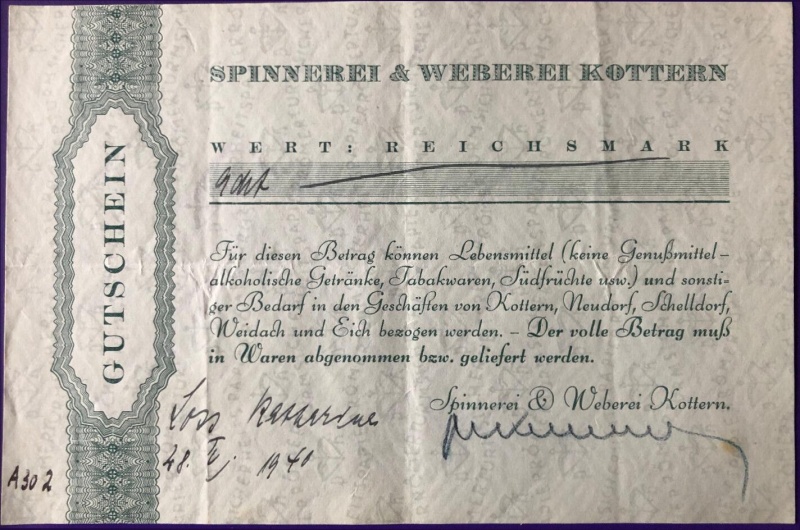 GUTSCHEIN
SPINNEREI & WEBEREI KOTTERN
WERT: REICHSMARK
Acht
Für diesen Betrag können Lebensmittel (keine Genußmittel-
alkoholische Getränke, Tabakwaren, Südfrüchte usw.) und sonsti-
ger Bedarf in den Geschäften von Kottern, Neudorf, Schelldorf,
Weidach und Eich bezogen werden. – Der volle Betrag muß
in Waren abgenommen bzw. geliefert werden.
Spinnerei & Weberei Kottern.
28. 1940
A302